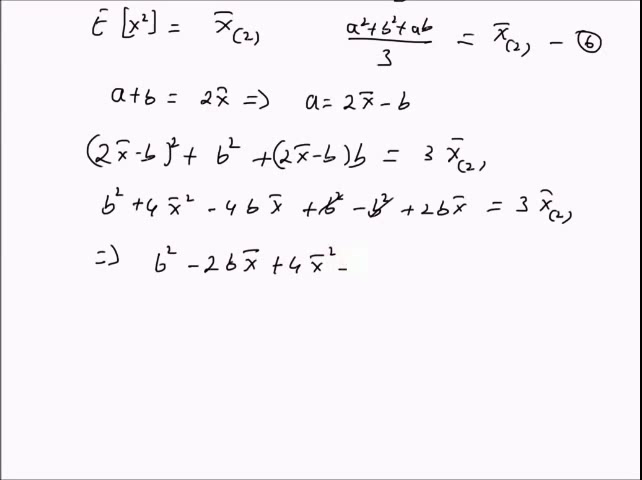 E[x²] = x̄₍₂₎    (a²+b²+ab)/3 = x̄₍₂₎ - ⑥
a+b = 2x̄ => a = 2x̄ - b
(2x̄-b)² + b² + (2x̄-b)b = 3 x̄₍₂₎
b² + 4x̄² - 4bx̄ + b² - b² + 2bx̄ = 3 x̄₍₂₎
=> b² - 2bx̄ + 4x̄² -